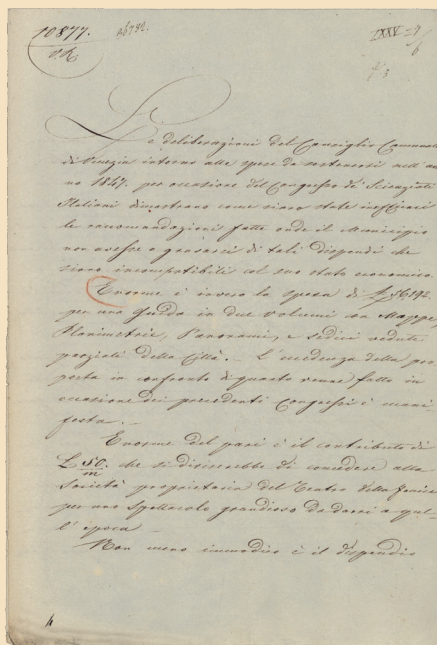 10877.
P.R.
Le deliberazioni del Consiglio Comunale
di Venezia intorno alle spese da sostenersi nell'an
no 1847. per occasione del Congresso di Scienziati
Italiani dimostrano come siano state inefficaci
le raccomandazioni fatte onde il Municipio
non avesse a gravarsi di tali dispendi che
siano incompatibili col suo stato economico.
Enorme è invero la spesa di
per una Guida in due volumi con Mappe,
Planimetrie, Panorami, e sedici vedute
parziali della Città. – L'eccedenza della pro
posta in confronto di quanto venne fatto in
occasione dei precedenti Congressi è mani
festa. –
Enorme del pari è il contributo di
L 50/m che si discuterebbe di concedere alla
Società proprietaria del Teatro della Fenice
per uno Spettacolo grandioso da darsi a quel
l'epoca –
Non meno immodico è il dispendio